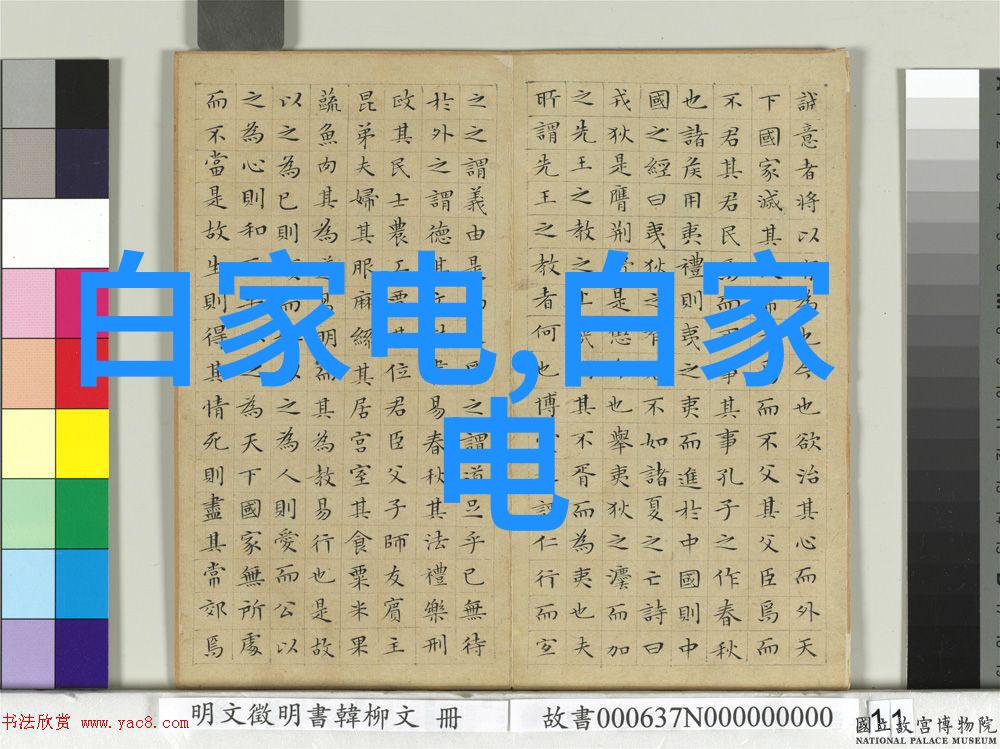 誠意者將以有為也今也欲治其心而外天
下國家滅其而不父其父臣焉而
不君其君民焉而不事其事孔子之作春秋
也諸侯用夷禮則夷之夷而進於中國則中
國之經曰夷狄之有不如諸夏之亡詩曰
戎狄是膺荊是懲也舉夷狄之灋而加
之先王之教之上其不胥而為夷也夫
所謂先王之教者何也博之謂仁行而宜
之之謂義由是之謂道足乎已無待
於外之謂德其文書易春秋其法禮樂刑
政其民士農工賈其位君臣父子師友賓主
昆弟夫婦其服麻絲其居宮室其食粟米果
蔬魚肉其為道易明而其為教易行也是故
以之為已則而以之為人則愛而公以
之為心則和而之為天下國家無所處
而不當是故生則得其情死則盡其常郊焉
白家电,白家
电
明文徵明書韓柳文 冊
故書000637N000000000
11
書法欣赏 www.yac8.com
國立故宮博物院
NATIONAL PALACE MUSEUM